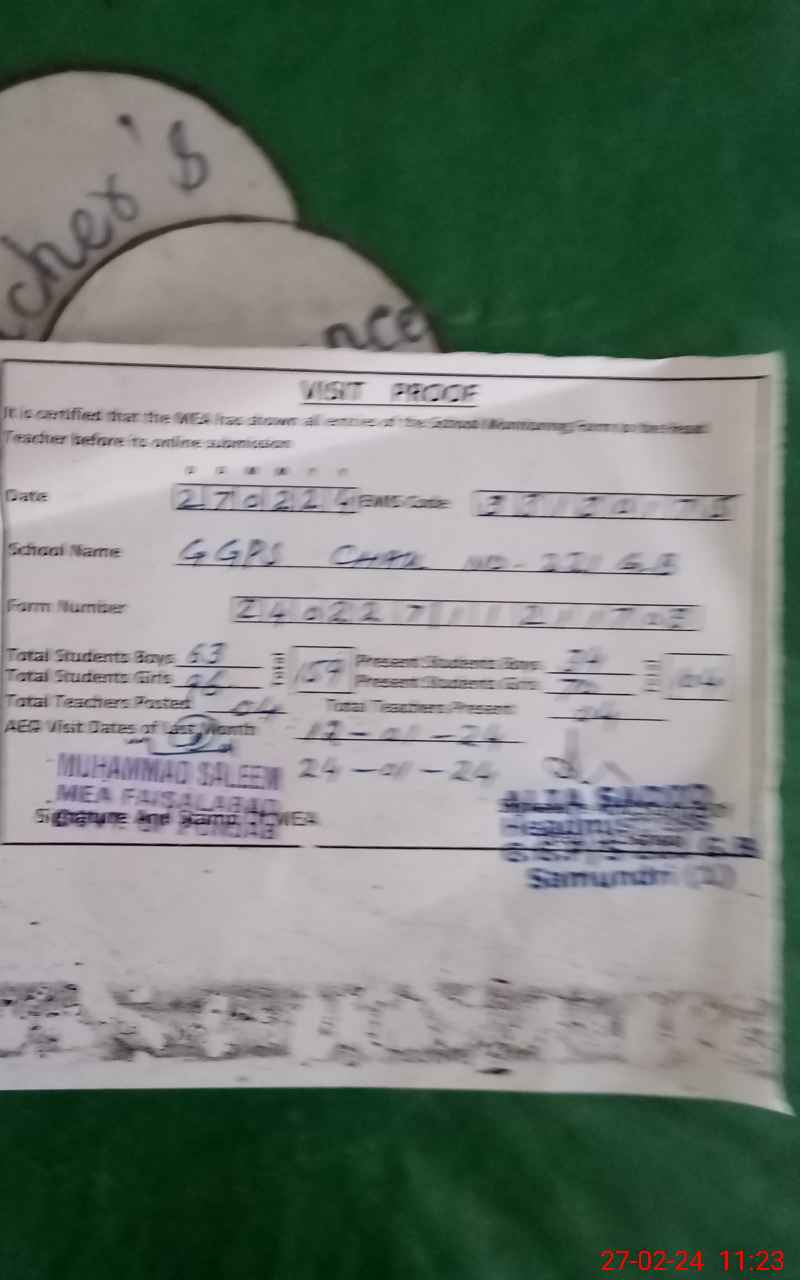 cher's
nce
VISIT PROOF
It is certified that the MEA has shown all entries of the School Monitoring Form to the Head
Teacher before its online submission
Date 270224 EMIS Code
School Name GGPS CHAK NO- 221 GB
Form Number
Total Students Boys 63 159 Present Students Boys 34
Total Students Girls 96 Present Students Girls 70 104
Total Teachers Posted 04 Total Teachers Present 04
AEO Visit Dates of Last Month 17-01-24
24-01-24
MUHAMMAD SALEEM
MEA FAISALABAD
GOVT. OF PUNJAB
Signature And Stamp Of MEA
Samundri
27-02-24 11:23